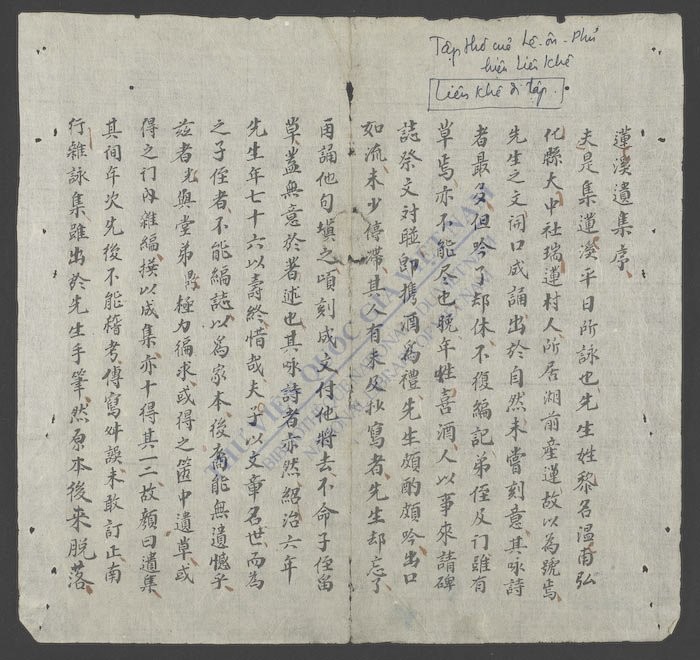 Tập thơ của Lê-Ôn-Phủ
hiệu Liên Khê
Liên Khê di tập.
蓮溪遺集序
夫是集蓮溪平日所詠也先生姓黎名温甫弘
化縣大中社瑞蓮村人所居湖前産蓮故以為號焉
先生之文開口成誦出於自然未嘗刻意其咏詩
者最多但吟了却休不復編記弟侄及门雖有
草焉亦不能尽也晚年性喜酒人以事來請碑
誌祭文対聫即携酒為禮先生頗酌頗吟出口
如流未少停滯其人有未及抄寫者先生却忘了
再誦他句填之頃刻成文付他將去不命子侄留
草蓋無意於著述也其咏詩者亦然紹治六年
先生年七十六以壽終惜哉夫子以文章名世而為
之子侄者不能編誌以為家本後裔能無遺憾乎
茲者允與堂弟極力徧求或得之箧中遺草或
得之门内雜編摸以成集亦十得其一二故顔曰遺集
其间年次先後不能稽考傳寫舛誤未敢訂止南
行雜詠集雖出於先生手筆然原本後來脱落
THƯ VIỆN QUỐC GIA VIỆT NAM